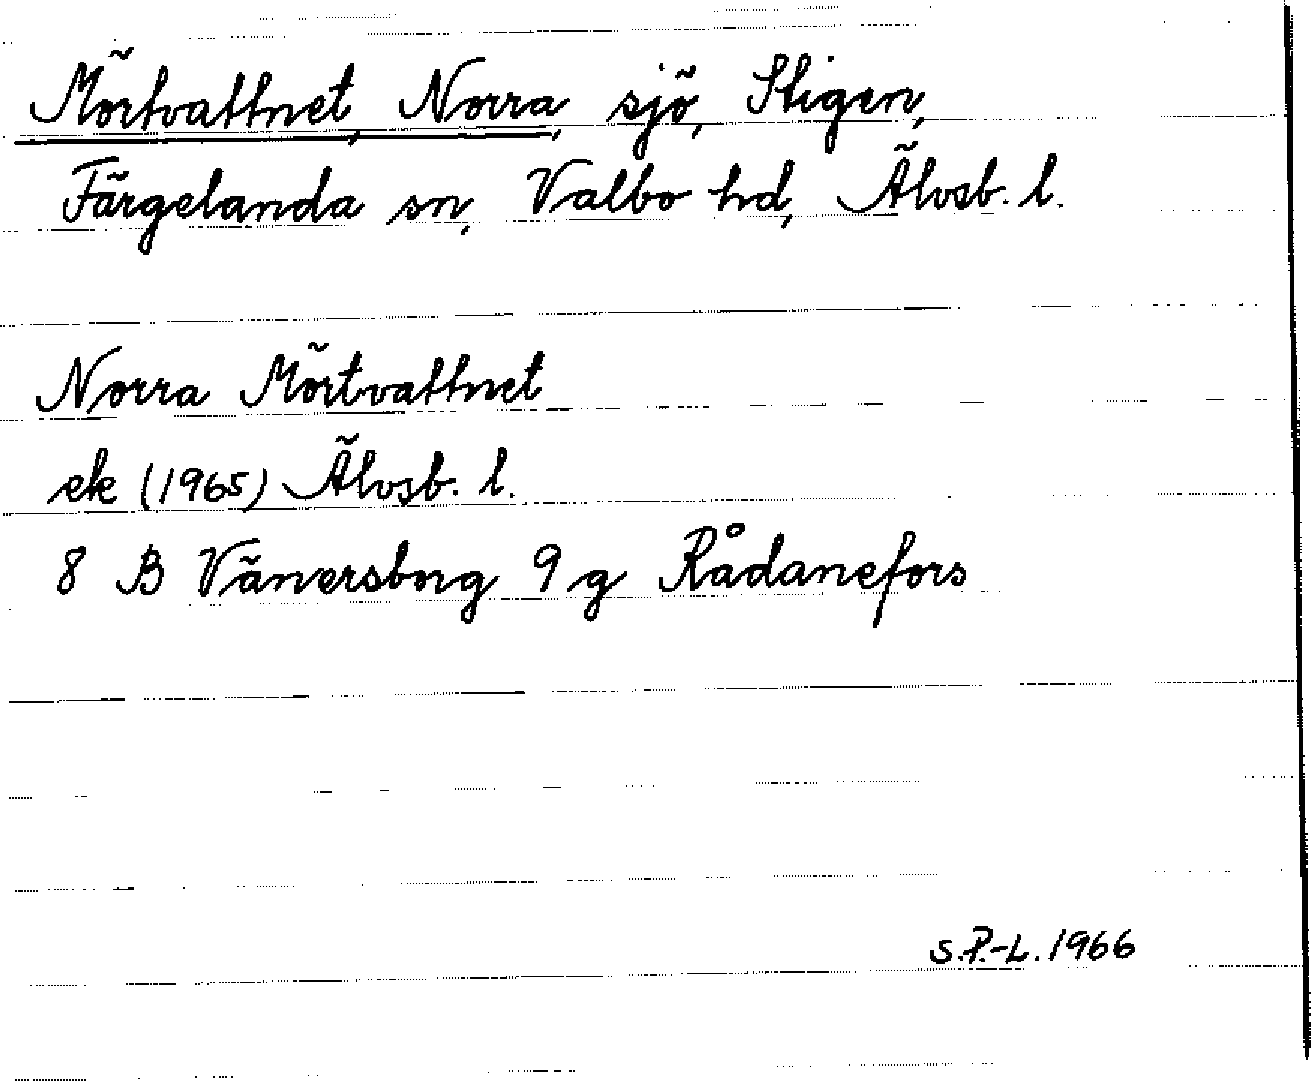 Mörtvattnet, Norra, sjö, Stigen,
Färgelanda sn, Valbo hd, Älvsb. l.
Norra Mörtvattnet
ek (1965) Älvsb. l.
8 B Vänersborg 9 g Rådanefors
S.P.-L. 1966